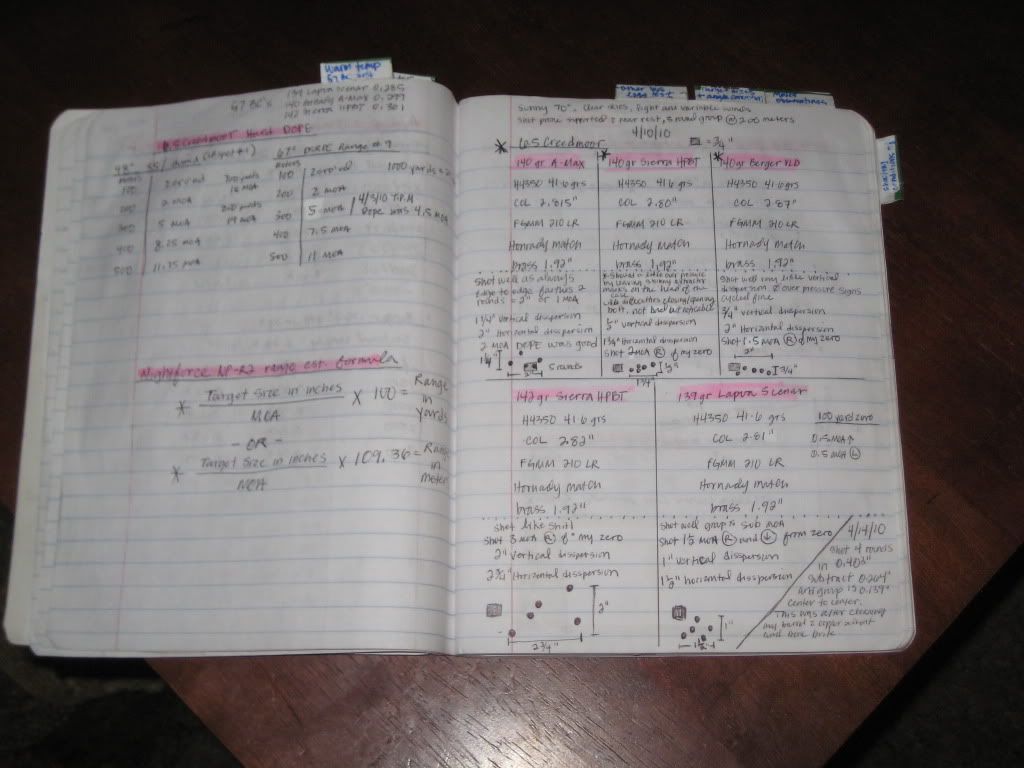 Warm temp
G7 BC's 139 Lapua Scenar 0.285
140 Hornady A-Max 0.299
142 Sierra HPBT 0.301
6.5 Creedmoor Hard DOPE
67° DOPE Range # 7
meters
100 zeroed
100 zeroed 1000 yards =
200 2 MOA
2 MOA
300 5 MOA
4/3/10 T.P.M
Dope was 4.5 MOA
5 MOA
400 7.5 MOA
400 8.25 MOA
500 11 MOA
500 11.75 MOA
Nightforce NP-R2 range est. formula
* Target Size in inches / MOA × 100 = Range in Yards
- OR -
* Target Size in inches / MOA × 109.36 = Range in Meters
Sunny 70°, clear skies, light and variable winds
Shot prone supported rear rest, 5 round group @ 200 meters
4/10/10
* 6.5 Creedmoor
= 3/4"
140 gr A-Max
H4350 41.6 grs
COL 2.815"
FGMM 210 LR
Hornady Match
brass 1.92"
Shot well as always
Edge to edge farthest 2
rounds = 2" or 1 MOA
1 1/4" vertical disspersion
2" Horizontal disspersion
2 MOA DOPE was good
1 1/4"
2"
5 rounds
* 140gr Sierra HPBT
H4350 41.6 grs
COL 2.80"
FGMM 210 LR
Hornady Match
brass 1.92"
* Showed a little over pressure
by leaving extractor
marks on the head of the
case
difficulties closing/opening
bolt, not bad but noticable
1/2" vertical disspersion
1 3/4" Horizontal disspersion
Shot 2 MOA (R) of my zero
1/2"
1 3/4"
* 140gr Berger VLD
H4350 41.6 grs
COL 2.87"
FGMM 210 LR
Hornady Match
brass 1.92"
Shot well very little vertical
disspersion over pressure signs
cycled fine
3/4" vertical disspersion
2" Horizontal disspersion
Shot 1.5 MOA (R) of my zero
2"
3/4"
142 gr Sierra HPBT
H4350 41.6 grs
COL 2.82"
FGMM 210 LR
Hornady Match
brass 1.92"
Shot like Shit!
Shot 3 MOA (R) of my zero
2" vertical disspersion
2 3/4" Horizontal disspersion
2"
2 3/4"
139gr Lapua Scenar
H4350 41.6 grs
COL 2.81"
FGMM 210 LR
Hornady Match
brass 1.92"
Shot well group is sub MOA
Shot 1 1/2 MOA (R) and (↓) from zero
1" vertical disspersion
1 1/2" horizontal disspersion
1"
1 1/2"
100 yard zero
0.5 MOA ↑
0.5 MOA (L)
4/14/10
Shot 4 rounds
in 0.403"
Subtract 0.264"
and group is 0.139"
center to center.
This was after cleaning
my barrel copper solvent
and bore brite